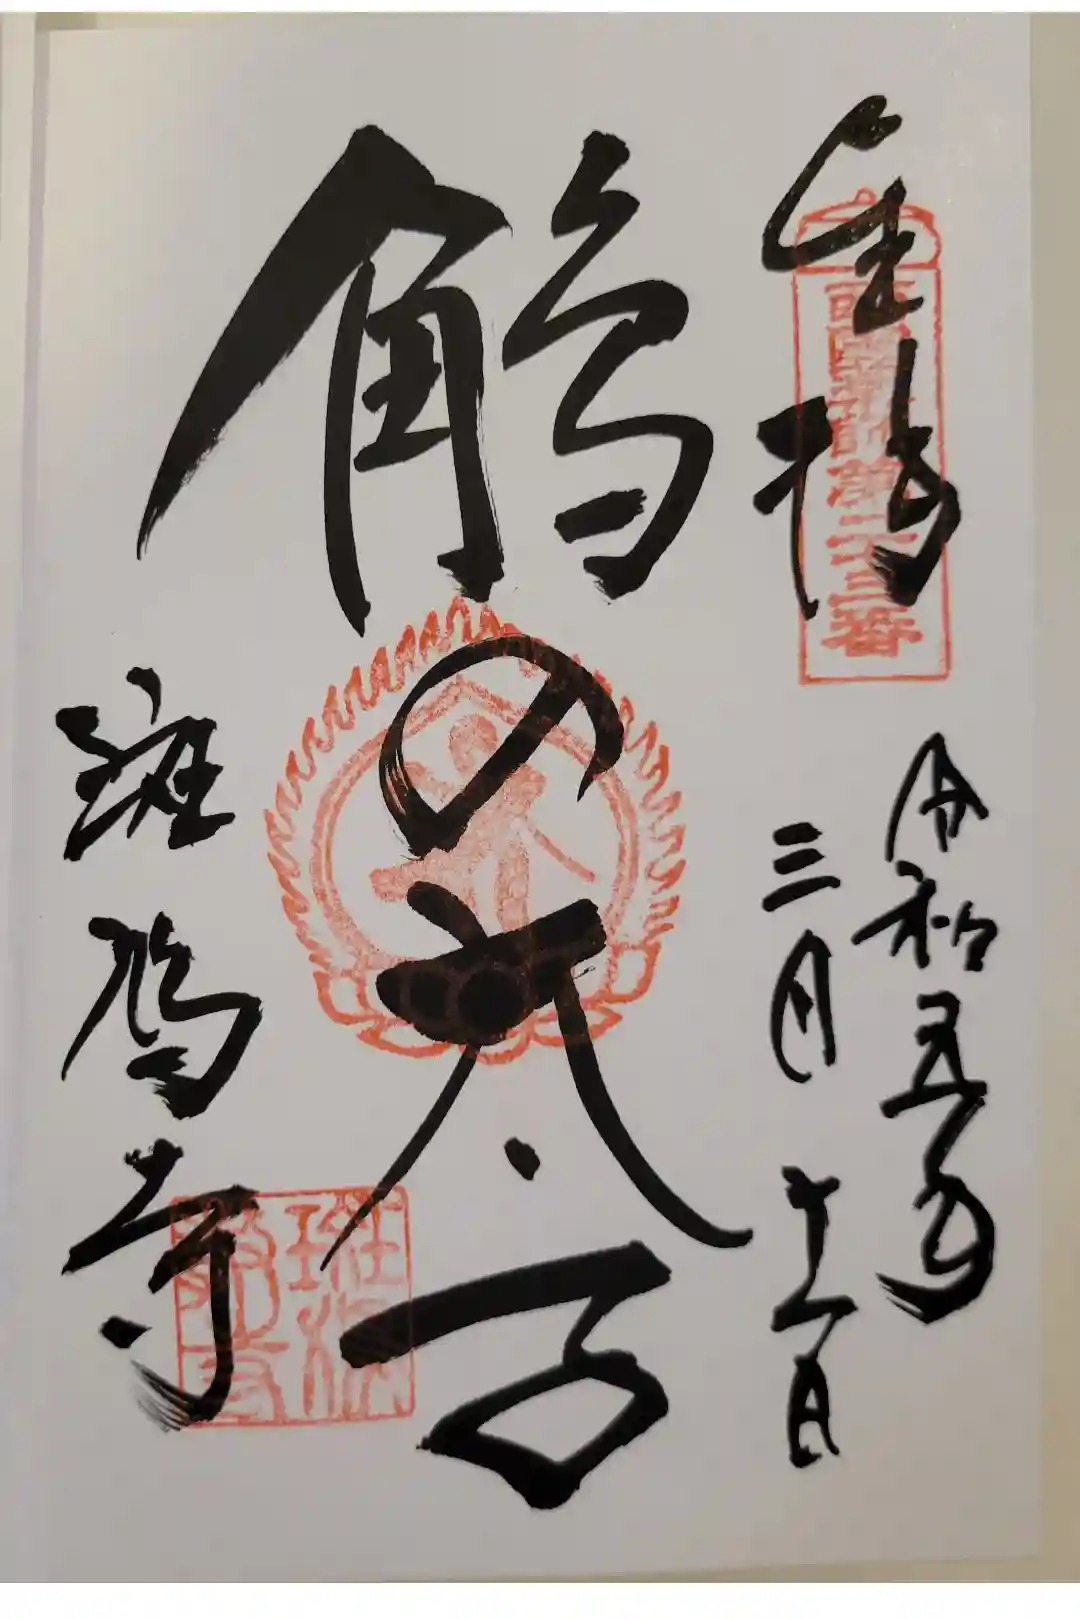 奉拝
西國薬師第二十三番
令和五年
三月十一日
鵤の太子
斑鳩寺